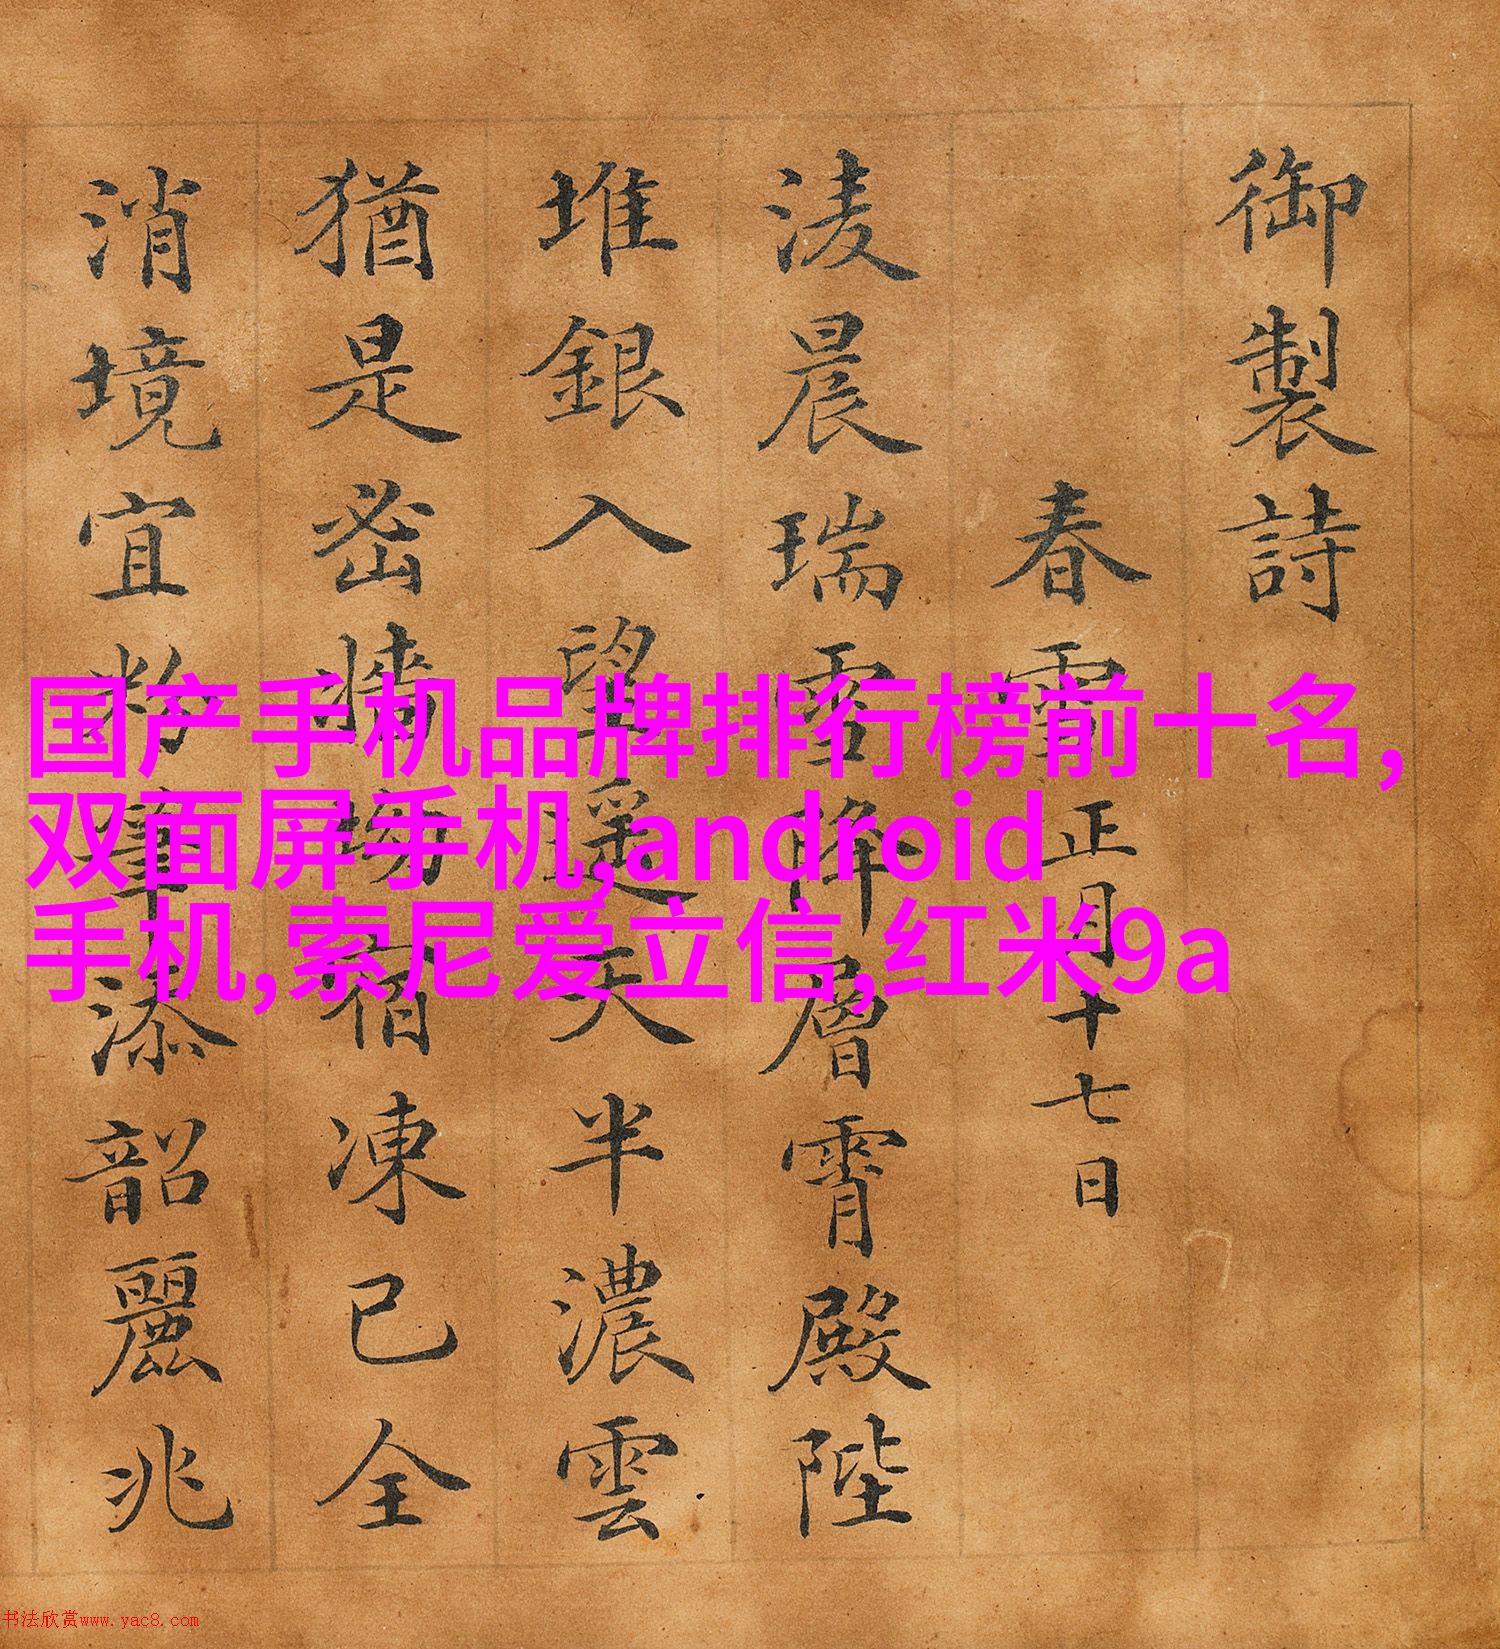 御製詩
春雪正月十七日
淩晨瑞雪降層霄殿陛
堆銀入望遥天半濃雲
猶是密牆坳宿凍已全
消境宜粉筆添韶麗兆
国产手机品牌排行榜前十名,
双面屏手机,android
手机,索尼爱立信,红米9a
书法欣赏www.yac8.com